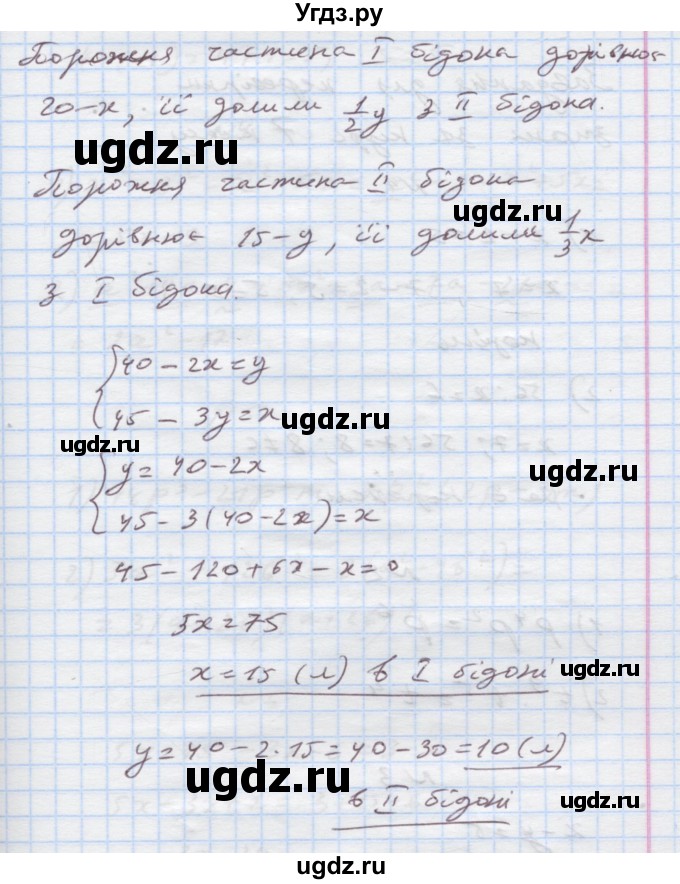 Угдз.ру
Порожня частина I бідона дорівнює
20-x, її долили 1/2 y з II бідона.
ugdz.ru
ugdz.ru
Порожня частина II бідона
ugdz.ru
дорівнює 15-y, її долили 1/3 x
з I бідона.
{40 - 2x = y
45 - 3y = x
ugdz.ru
ugdz.ru
{y = 40 - 2x
45 - 3(40 - 2x) = x
ugdz.ru
45 - 120 + 6x - x = 0
5x = 75
ugdz.ru
x = 15 (л) в I бідоні
y = 40 - 2·15 = 40 - 30 = 10 (л)
ugdz.ru
в II бідоні
ugdz.ru
ugdz.ru